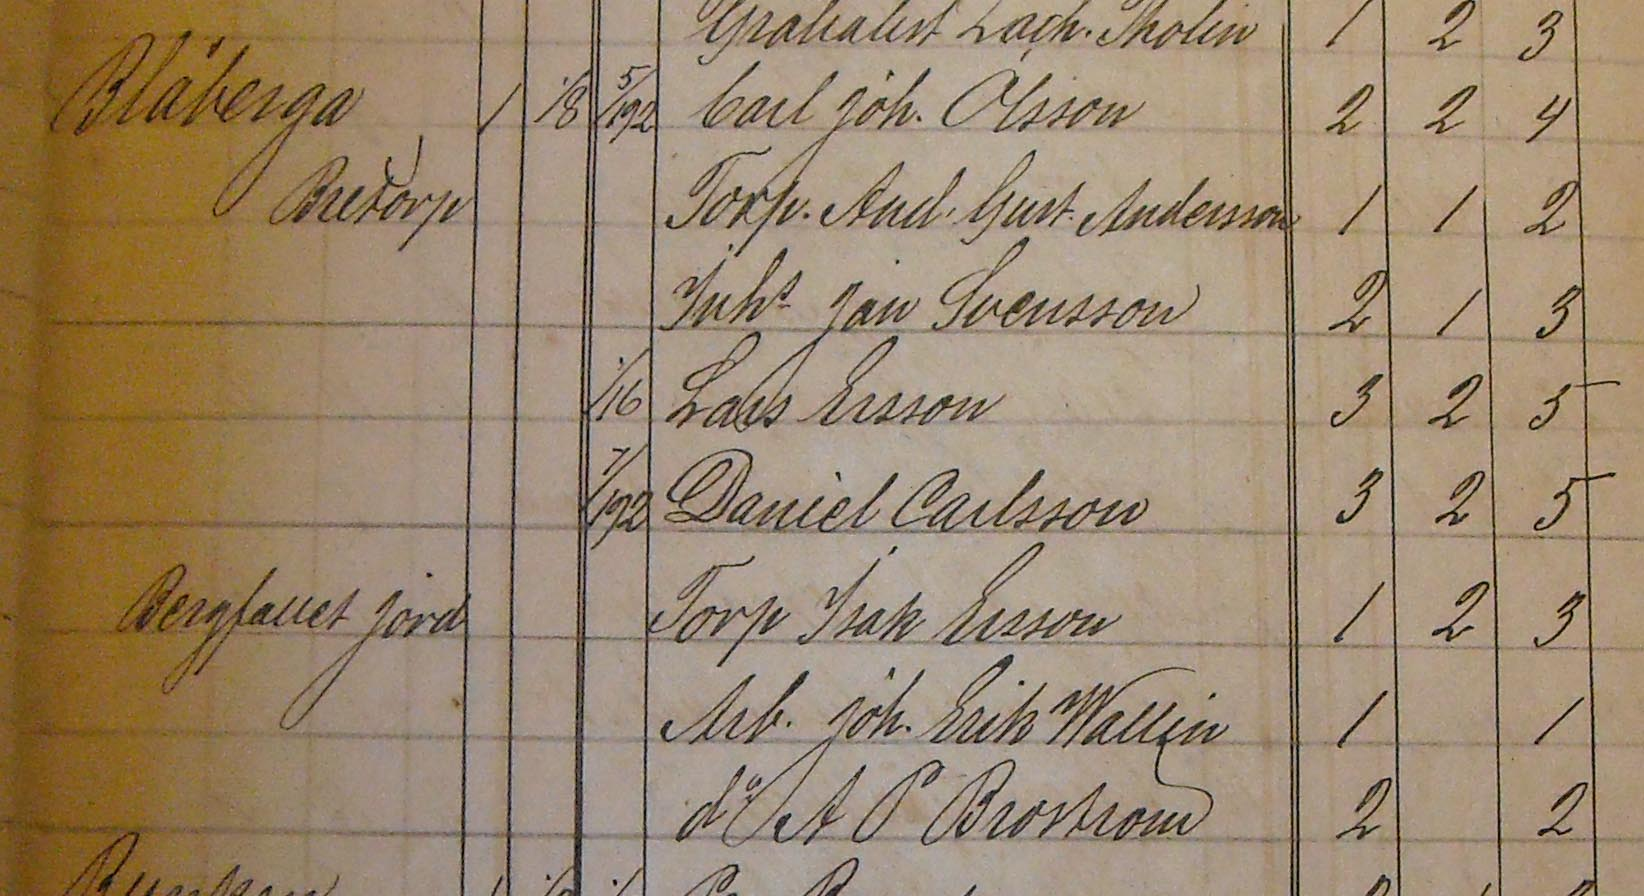 Gratialist Zach. Tholin 1 2 3
Blåberga 1 1/8 5/192 Carl Joh. Olsson 2 2 4
Bretorp Torp. And. Gust. Andersson 1 1 2
Inhs Jan Svensson 2 1 3
1/16 Lars Ersson 3 2 5
7/192 Daniel Carlsson 3 2 5
Bergfallet jord Torp Isak Ersson 1 2 3
Arb. Joh. Erik Wallin 1 1
do A P Brostrom 2 2